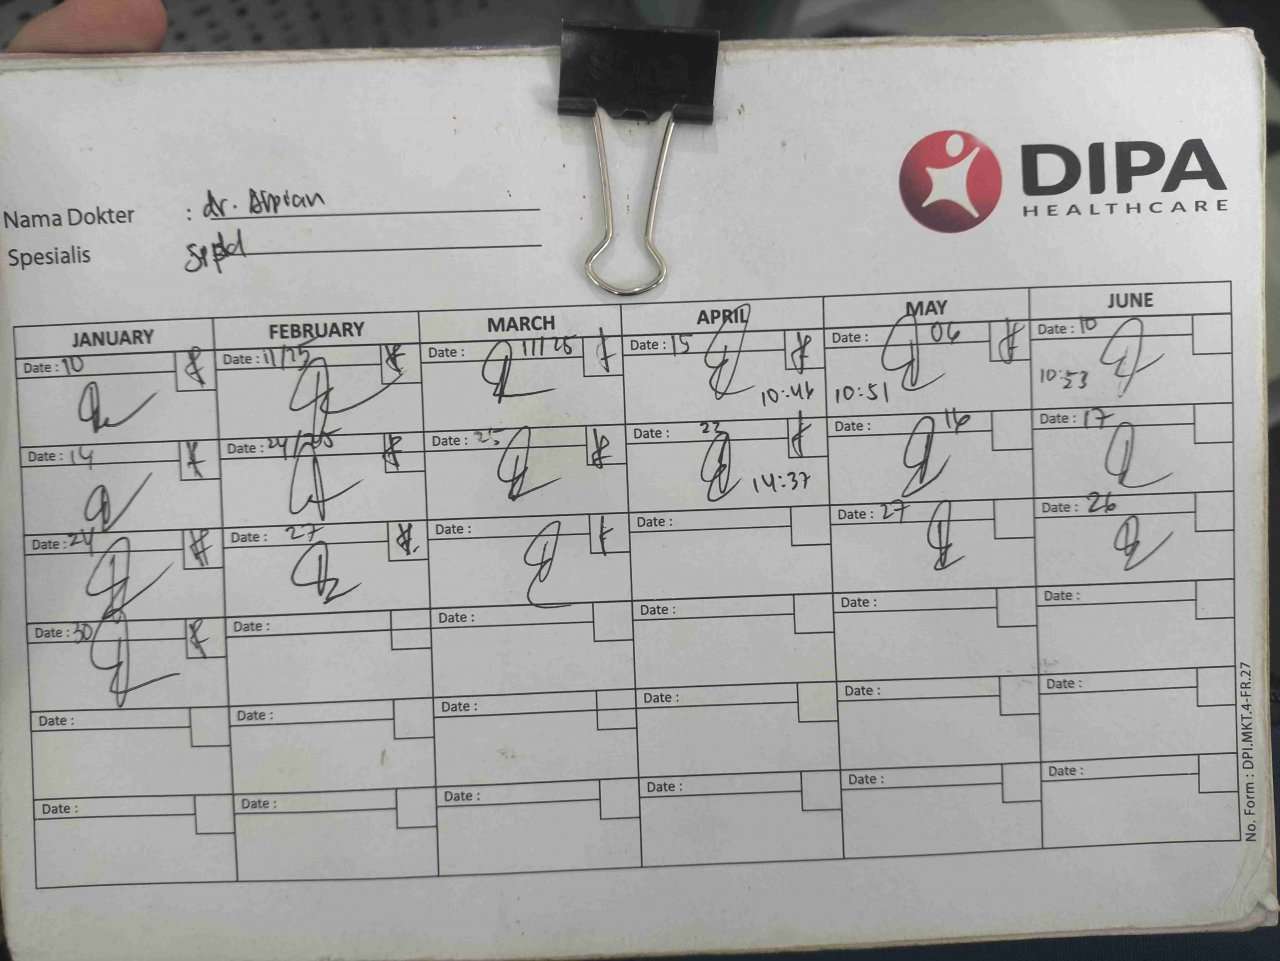 DIPA
HEALTHCARE
Nama Dokter : dr. Alpian
Spesialis SPpd
JANUARY FEBRUARY MARCH APRIL MAY JUNE
Date : 10 Date : 11/25 Date : 11/25 Date : 15 Date : 06 Date : 10
10:46 10:51 10:53
Date : 14 Date : 24/25 Date : 25 Date : 23 Date : 16 Date : 17
14:37
Date : 24 Date : 27 Date : Date : Date : 27 Date : 26
Date : 30 Date : Date : Date : Date : Date :
Date : Date : Date : Date : Date : Date :
Date : Date : Date : Date : Date : Date :
No. Form : DPI.MKT.4-FR.27